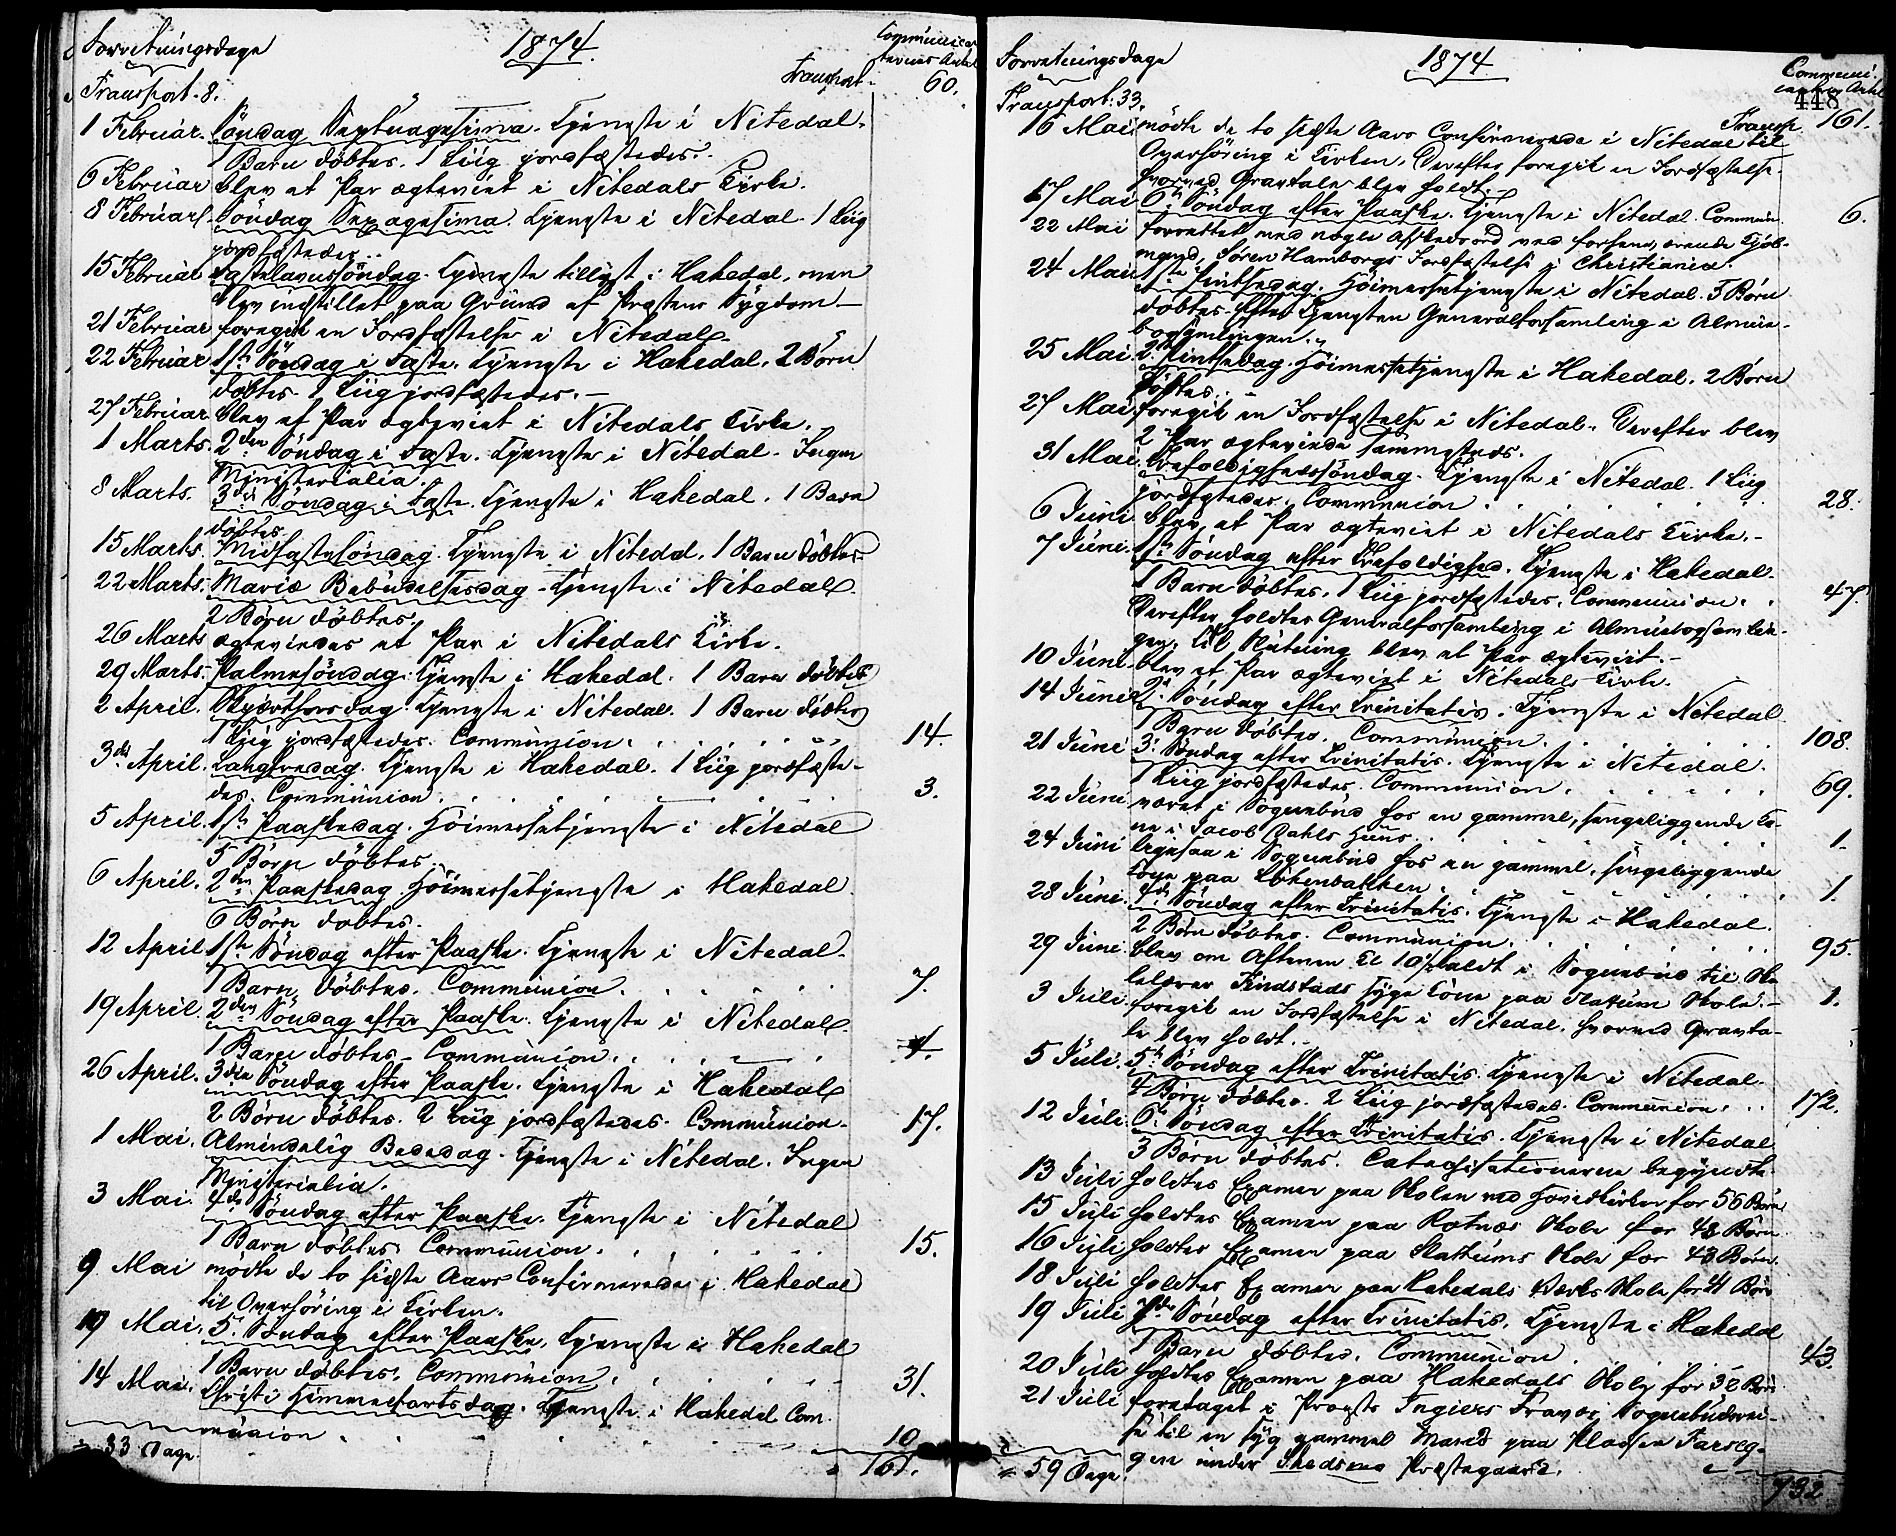 Forretningsdage 1874. Communican-
ternes Antal
Transport. 8. Transport. 60.
1 Februar. Söndag Septuagesima. Tjeneste i Nitedal.
1 Barn döbtes. 1 Liig jordfæstedes.
6 Februar blev et Par ægteviet i Nitedals Kirke.
8 Februar. Söndag Sexagesima. Tjeneste i Nitedal. 1 Liig
jordfæstedes.
15 Februar Fastelavnssöndag. Tjeneste tillyst i Hakedal, men
blev indstillet paa Grund af Præstens Sygdom.
21 Februar foregik en Jordfæstelse i Nitedal.
22 Februar 1ste Söndag i Faste. Tjeneste i Hakedal. 2 Börn
döbtes. 1 Liig jordfæstedes.
27 Februar blev et Par ægteviet i Nitedals Kirke.
1 Marts. 2den Söndag i Faste. Tjeneste i Nitedal. Ingen
Ministerialia.
8 Marts. 3die Söndag i Faste. Tjeneste i Hakedal. 1 Barn
döbtes.
15 Marts. Midfastesöndag. Tjeneste i Nitedal. 1 Barn döbtes.
22 Marts. Mariæ Bebudelsesdag. Tjeneste i Nitedal.
2 Börn döbtes.
26 Marts ægteviedes et Par i Nitedals Kirke.
29 Marts. Palmesöndag. Tjeneste i Hakedal. 1 Barn döbtes
2 April. Skjærthorsdag. Tjeneste i Nitedal. 1 Barn döbtes
1 Liig jordfæstedes. Communion. 14.
3die April. Langfredag. Tjeneste i Hakedal. 1 Liig jordfæste-
des. Communion. 3.
5 April. 1ste Paaskedag. Höimessetjeneste i Nitedal
5 Börn döbtes.
6 April. 2den Paaskedag. Höimessetjeneste i Hakedal
6 Börn döbtes.
12 April 1ste Söndag efter Paaske. Tjeneste i Nitedal.
1 Barn döbtes. Communion. 7.
19 April. 2den Söndag efter Paaske. Tjeneste i Nitedal
1 Barn döbtes. Communion. 4.
26 April. 3die Söndag efter Paaske. Tjeneste i Hakedal
2 Börn döbtes. 2 Liig jordfæstedes. Communion. 17.
1 Mai. Almindelig Bededag. Tjeneste i Nitedal. Ingen
Ministerialia.
3 Mai. 4de Söndag efter Paaske. Tjeneste i Nitedal
1 Barn döbtes. Communion. 15.
9 Mai mödte de to sidste Aars Confirmerede i Hakedal
til Overhöring i Kirken.
10 Mai. 5. Söndag efter Paaske. Tjeneste i Hakedal
1 Barn döbtes. Communion. 31.
14 Mai. Christi Himmelfartsdag. Tjeneste i Hakedal Com-
munion 10
= 33 Dage. = 161.
Forretningsdage 1874 Communi-
cantern Antal
448
Transport: 33. Transp. 161.
16 Mai mödte de to sidste Aars Confirmerede i Nitedal til
Overhöring i Kirken. Derefter foregik en Jordfæstelse,
hvorved Gravtale blev holdt.
17 Mai 6te Söndag efter Paaske. Tjeneste i Nitedal. Commun. 6.
22 Mai forrettet med nogle Afskedsord ved Kjöb-
mand, Sören Hamborgs Jordfæstelse i Christiania.
24 Mai 1ste Pintsedag. Höimessetjeneste i Nitedal. 5 Börn
döbtes. Efter Tjenesten Generalforsamling i Almue-
bogsamlingen.
25 Mai 2. Pintsedag. Höimessetjeneste i Hakedal. 2 Börn
döbtes.
27 Mai foregik en Jordfæstelse i Nitedal. Derefter blev
2 Par ægteviede sammesteds.
31 Mai. Trefoldighedssöndag. Tjeneste i Nitedal. 1 Liig
jordfæstedes. Communion. 28.
6 Juni blev et Par ægteviet i Nitedals Kirke.
7 Juni. 1ste Söndag efter Trefoldighed. Tjeneste i Hakedal.
1 Barn döbtes. 1 Liig jordfæstedes. Communion. 47.
Derefter holdtes Generalforsamling i Almuebogsamlin-
gen. Til Slutning blev et Par ægteviet.
10 Juni blev et Par ægteviet i Nitedals Kirke.
14 Juni 2. Söndag efter Trinitatis. Tjeneste i Nitedal
1 Barn döbtes. Communion. 108.
21 Juni 3. Söndag efter Trinitatis. Tjeneste i Nitedal.
1 Liig jordfæstedes. Communion. 69.
22 Juni været i Sognebud hos en gammel, sengeliggende Ko-
ne i Jacob Dahls Huus. 1
24 Juni ligesaa i Sognebud hos en gammel, sengeliggende
Kone paa Lökenbakken. 1.
28 Juni. 4de Söndag efter Trinitatis. Tjeneste i Hakedal.
2 Börn döbtes. Communion. 95.
29 Juni blev om Aftenen Kl 10½ kaldt i Sognebud til Sko-
lelærer Kindstads syge Kone paa Slattum Skole. 1.
3 Juli. foregik en Jordfæstelse i Nitedal, hvorved Gravta-
le blev holdt.
5 Juli. 5te Söndag efter Trinitatis. Tjeneste i Nitedal.
4 Börn döbtes. 2 Liig jordfæstedes. Communion. 172.
12 Juli. 6te Söndag efter Trinitatis. Tjeneste i Nitedal
3 Börn döbtes. Catechisationerne begyndte.
13 Juli holdtes Examen paa Skolen ved Hovedkirken for 56 Börn
15 Juli holdtes Examen paa Rotnæs Skole for 48 Börn.
16 Juli holdtes Examen paa Slattums Skole for 43 Börn.
18 Juli holdtes Examen paa Hakedals Værks Skole for 41 Börn
19 Juli 7de Söndag efter Trinitatis. Tjeneste i Hakedal
1 Barn döbtes. Communion. 43.
20 Juli holdtes Examen paa Hakedals Skole for 32 Börn
21 Juli foretaget i Provste Ingiers Fravær Sognebudsrei-
se til en syg gammel Mand paa Pladsen
gen under Skedsmo Præstegaard.
= 59 Dage. 732